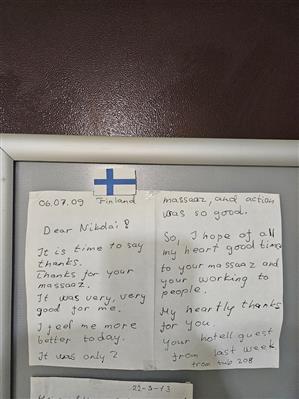 06.07.09 Finland
Dear Nikolai!
It is time to say
thanks.
Thanks for your
massaaz.
It was very, very
good for me.
I feel me more
better today.
It was only 2
massaaz, and action
was so good.
So, I hope of all
my heart good time
to your massaaz and
your working to
people.
My heartly thanks
for you.
Your hotell guest
from last week
from tub 208
22-3-13